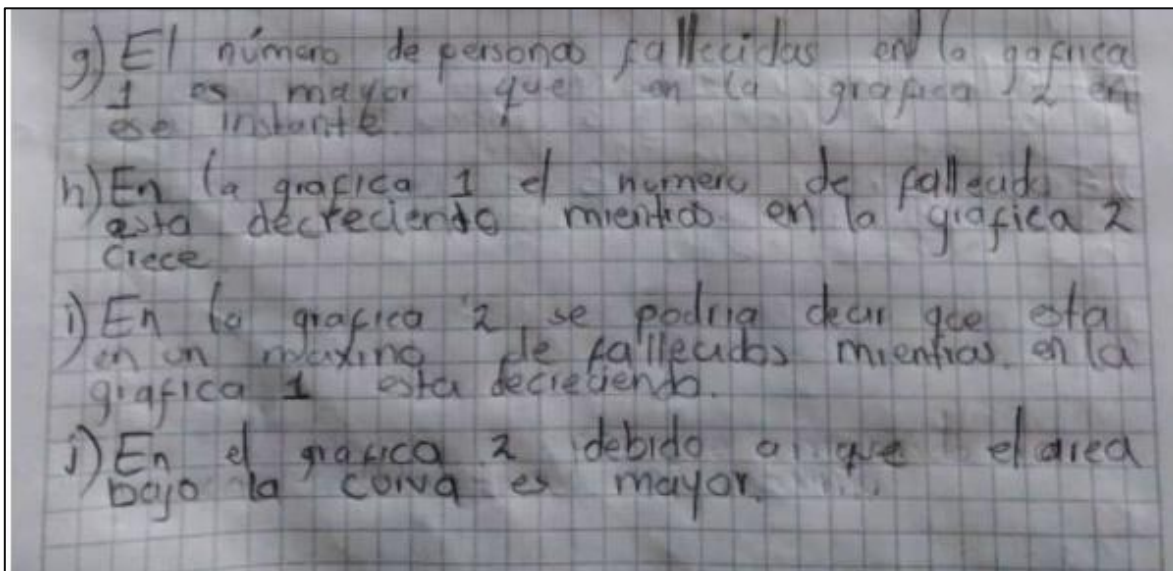 g) El número de personas fallecidas en la gafrica
1 es mayor que en la grafica 2 en
ese instante.
h) En la grafica 1 el numero de fallecido
esta decreciendo mientras en la grafica 2
crece
i) En la grafica 2, se podria decir que esta
en un maximo de fallecidos mientras en la
grafica 1 esta decreciendo.
j) En el grafica 2 debido a que el area
bajo la curva es mayor.